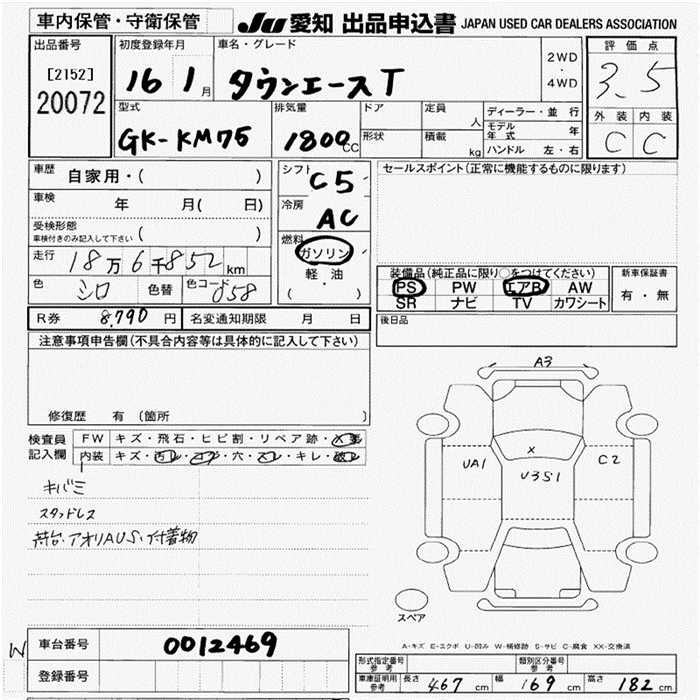 車内保管・守衛保管
JU 愛知 出品申込書 JAPAN USED CAR DEALERS ASSOCIATION
出品番号
[2152]
20072
初度登録年月
16 1月
車名・グレード
タウンエースT
2WD
・
4WD
評価点
3.5
外装 内装
C C
型式
GK-KM75
排気量
1800cc
ドア
形状
定員
人
積載
kg
ディーラー・並行
モデル年式 年
ハンドル 左・右
車歴 自家用・( )
車検 年 月( 日)
受検形態
車検付きのみ記入して下さい ( )
走行 18万6千852km
色 シロ 色替 色コード 058
シフト C5
冷房 AC
燃料
ガソリン
軽・油
( ・ )
セールスポイント(正常に機能するものに限ります)
装備品(純正品に限り○をつけてください)
PS PW エアB AW
SR ナビ TV カワシート
新車保証書
有・無
R券 8,790円 名変通知期限 月 日
後日品
注意事項申告欄(不具合内容等は具体的に記入して下さい)
修復歴 有 (箇所 )
検査員
記入欄
FW キズ・飛石・ヒビ割・リペア跡・
内装 キズ・汚レ・コゲ・穴・スレ・キレ・破レ
キバミ
スタッドレス
荷台・アオリAUS・付着物
A3
X
UA1
U3S1
C2
スペア
A-キズ E-エクボ U-凹み W-補修跡 S-サビ C-腐食 XX-交換済
W
車台番号 0012469
登録番号
形式指定番号
参考
類別区分番号
参考
車庫証明用
参考
長さ 467cm 幅 169cm 高さ 182cm